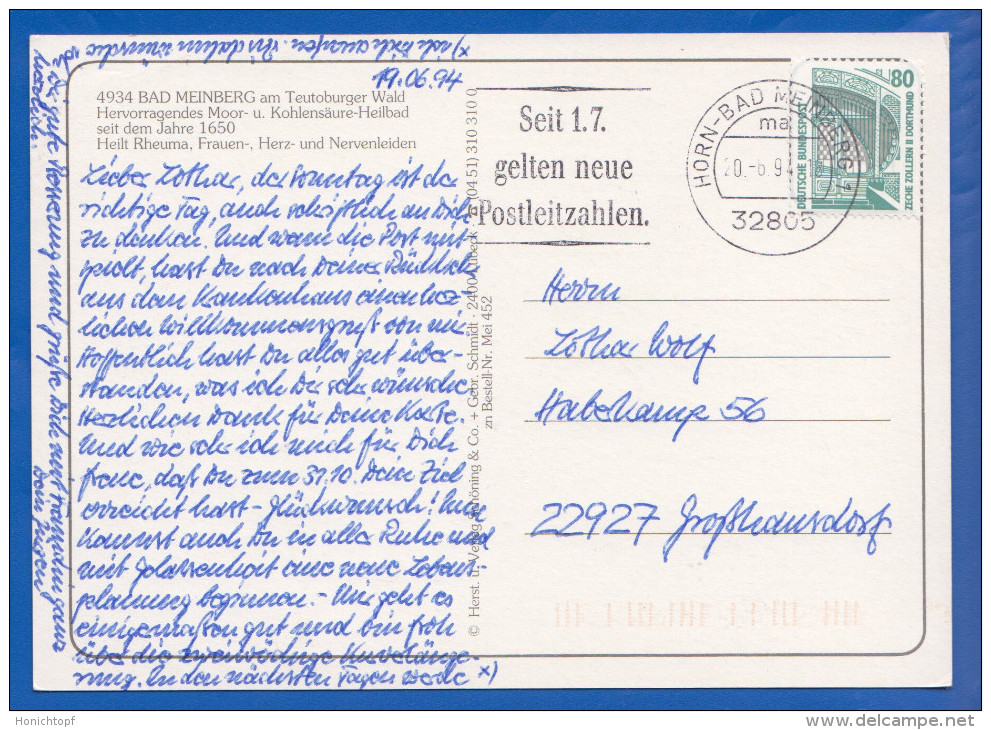 19.06.94
4934 BAD MEINBERG am Teutoburger Wald
Hervorragendes Moor- u. Kohlensäure-Heilbad
seit dem Jahre 1650
Heilt Rheuma, Frauen-, Herz- und Nervenleiden
Lieber Lothar, der Sonntag ist der
richtige Tag, auch schriftlich an Dich
zu denken. Und wenn die Post mit-
spielt, hast Du nach Deiner Rückkehr
aus dem Krankenhaus einen herz-
lichen Willkommensgruß von mir.
Hoffentlich hast Du alles gut über-
standen, was ich Dir sehr wünsche.
Herzlichen Dank für Deine Karte.
Und wie sehr ich mich für Dich
freue, daß Du zum 31.10. Dein Ziel
erreicht hast – Glückwunsch! Nun
kannst auch Du in aller Ruhe und
mit Gelassenheit eine neue Lebens-
planung beginnen. – Mir geht es
einigermaßen gut und bin froh
über die zweiwöchige Kurverlänge-
rung. In den nächsten Tagen werde x)
x) ich Dich anrufen. Bis dahin wünsche
ich Dir gute Genesung und grüße Dich
herzlich.
Dein Jürgen
© Herst. u. Verlag Schöning & Co. + Gebr. Schmidt · 2400 Lübeck · (04 51) 310 310 0
zn Bestell-Nr. Mei 452
Seit 1.7.
gelten neue
Postleitzahlen.
HORN-BAD MEINBERG 1
ma
20.-6.94
32805
80
DEUTSCHE BUNDESPOST
ZECHE ZOLLERN II DORTMUND
Herrn
Lothar Wolf
Haberkamp 56
22927 Großhansdorf
Honichtopf
www.delcampe.net